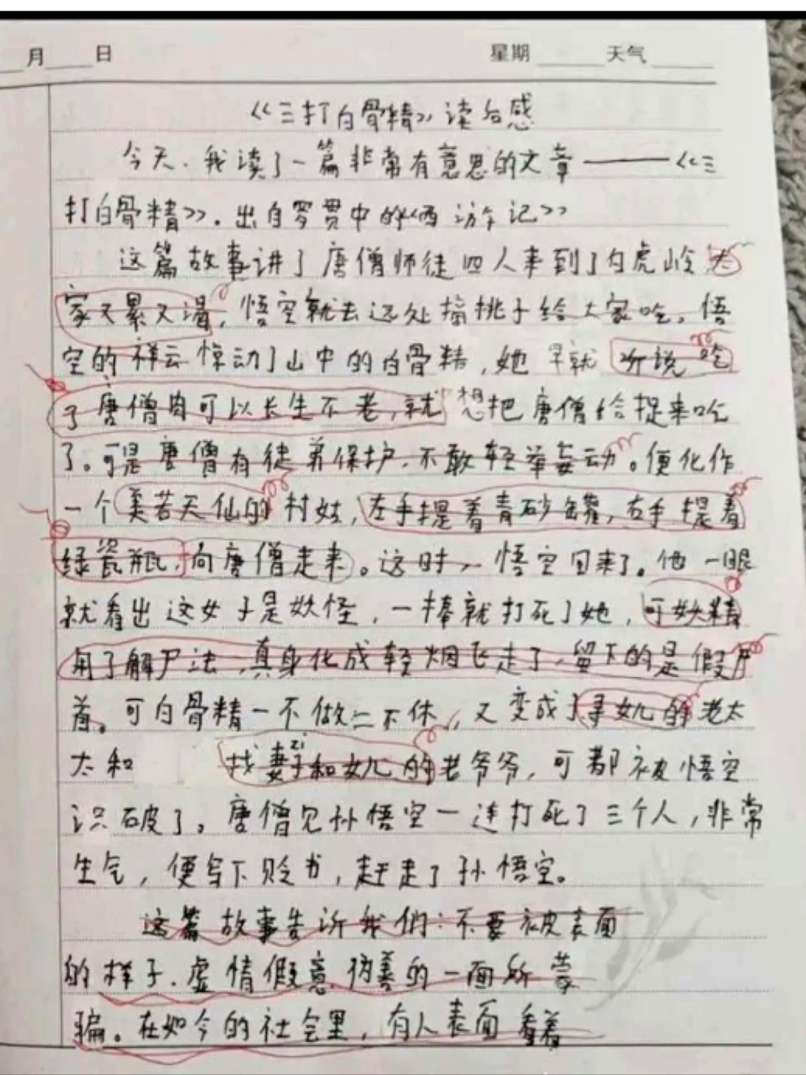 月 日 星期 天气
《三打白骨精》读后感
今天.我读了一篇非常有意思的文章——《三
打白骨精》.出自罗贯中的《西游记》
这篇故事讲了唐僧师徒四人来到了白虎岭大
家又累又渴,悟空就去远处摘桃子给大家吃。悟
空的祥云惊动了山中的白骨精,她早就听说吃
了唐僧肉可以长生不老,就想把唐僧给捉来吃
了。可是唐僧有徒弟保护.不敢轻举妄动。便化作
一个美若天仙的村姑,左手提着青砂罐,右手提着
绿瓷瓶,向唐僧走来。这时,悟空回来了。他一眼
就看出这女子是妖怪,一棒就打死了她,可妖精
用了解尸法,真身化成轻烟飞走了,留下的是假尸
首。可白骨精一不做二不休,又变成了寻女儿的老太
太和 找妻子和女儿的老爷爷,可都被悟空
识破了。唐僧见孙悟空一连打死了三个人,非常
生气,便写下贬书,赶走了孙悟空。
这篇故事告诉我们:不要被表面
的样子.虚情假意.伪善的一面所蒙
骗。在如今的社会里,有人表面看着